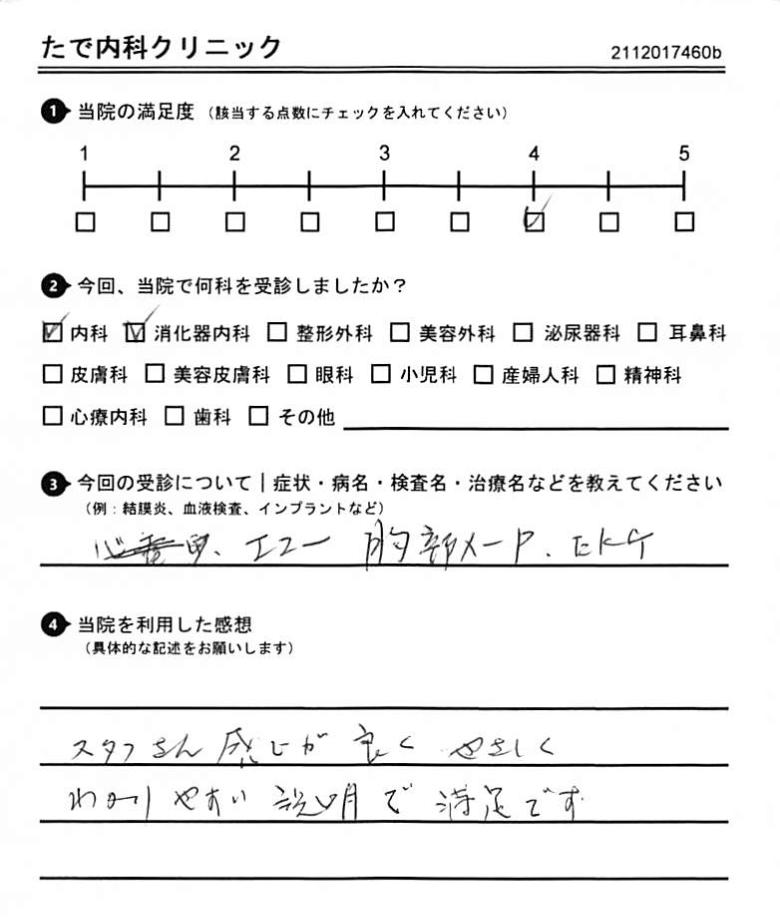 たで内科クリニック
2112017460b
1 当院の満足度 (該当する点数にチェックを入れてください)
1 2 3 4 5
2 今回、当院で何科を受診しましたか?
内科 消化器内科 整形外科 美容外科 泌尿器科 耳鼻科
皮膚科 美容皮膚科 眼科 小児科 産婦人科 精神科
心療内科 歯科 その他
3 今回の受診について|症状・病名・検査名・治療名などを教えてください
(例:結膜炎、血液検査、インプラントなど)
、エコー 胸部 、EKG
4 当院を利用した感想
(具体的な記述をお願いします)
スタフさん 感じが 良く やさしく
わかりやすい 説明で 満足です